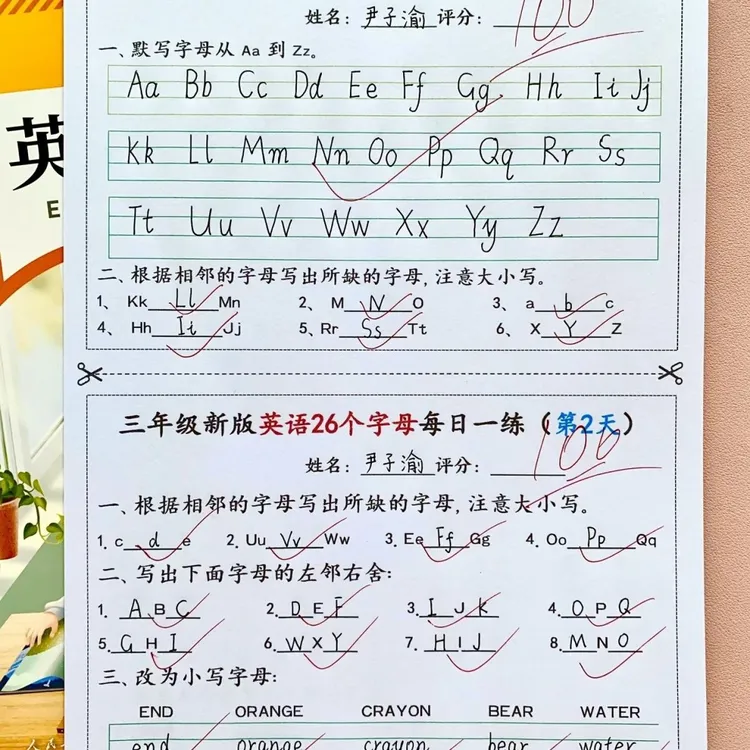 姓名：尹子渝 评分：100
一、默写字母从 Aa 到 Zz。
Aa Bb Cc Dd Ee Ff Gg Hh Ii Jj
Kk Ll Mm Nn Oo Pp Qq Rr Ss
Tt Uu Vv Ww Xx Yy Zz
二、根据相邻的字母写出所缺的字母,注意大小写。
1、 Kk Ll Mn 2、 M N O 3、 a b c
4、 Hh Ii Jj 5、Rr Ss Tt 6、 X Y Z
三年级新版英语26个字母每日一练（第2天）
姓名：尹子渝 评分：100
一、根据相邻的字母写出所缺的字母,注意大小写。
1. c d e 2. Uu Vv Ww 3. Ee Ff Gg 4. Oo Pp Qq
二、写出下面字母的左邻右舍：
1. A B C 2. D E F 3. I J K 4. O P Q
5. G H I 6. W X Y 7. H I J 8. M N O
三、改为小写字母：
END ORANGE CRAYON BEAR WATER
end orange crayon bear water
英
E